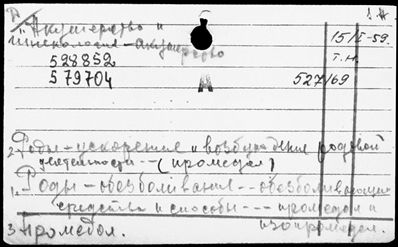 Акушерство и 1 А
гинекология - акушерство 15/I-59.
528852 Т.Н.
579704 527/69
А
2. Роды - ускорение и возбуждение родовой
деятельности -- (промедол)
1. Роды - обезболивание -- обезболивающие
средства и способы --- промедол и
изопромедол.
3. Промедол.